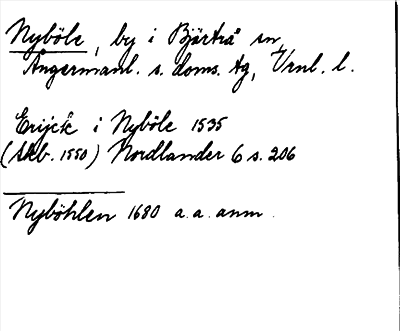 Nyböle, by i Bjärtrå sn,
Ångermanl. s. doms. tg, Vrnl. l.
Erijck i Nyböle 1535
(Skb. 1550) Nordlander 6 s. 206
Nyböhlen 1680 a.a. anm.